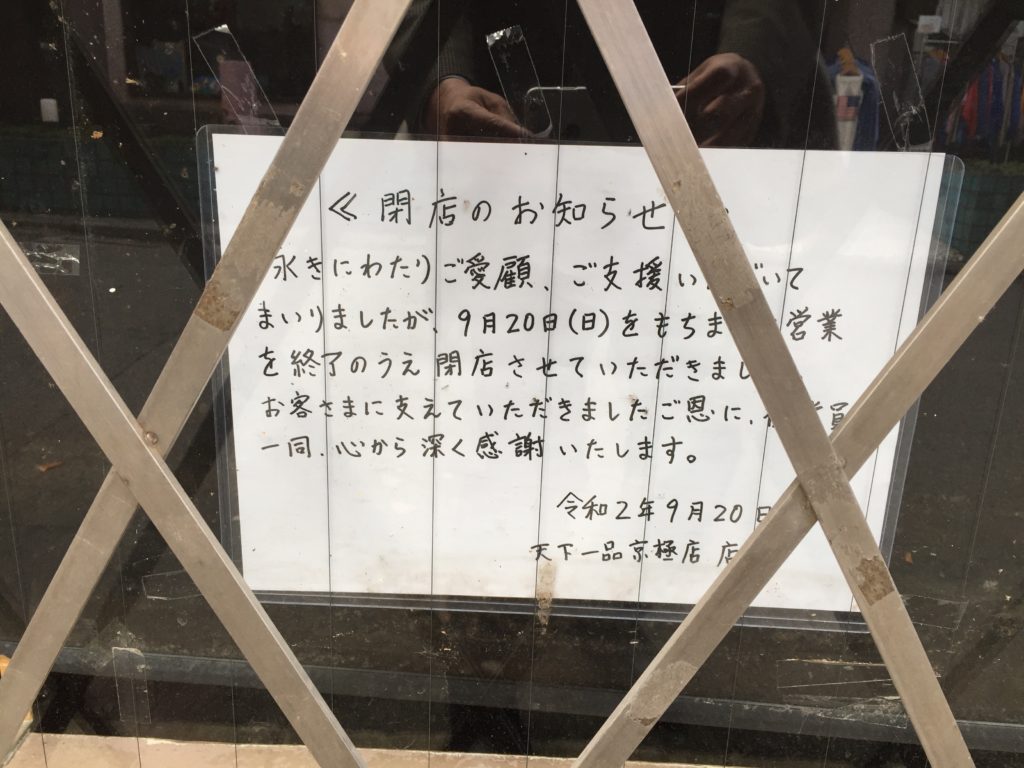 ≪閉店のお知らせ
永きにわたりご愛顧、ご支援い いて
まいりましたが、9月20日(日)をもちま 営業
を終了のうえ閉店させていただきまし
お客さまに支えていただきましたご恩に、 業員
一同、心から深く感謝いたします。
令和2年9月20日
天下一品京極店 店